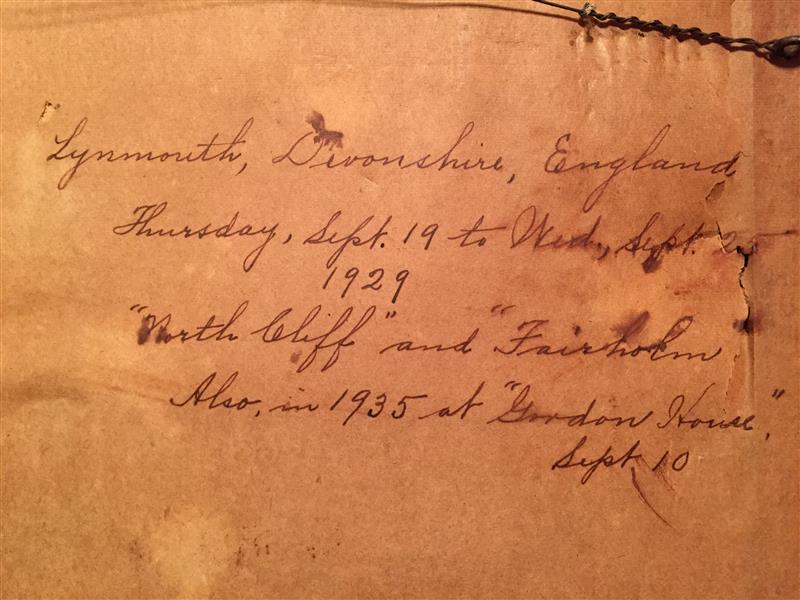 Lynmouth, Devonshire, England
Thursday, Sept. 19 to Wed., Sept. 25
1929
"North Cliff" and "Fairholm
Also, in 1935 at "Gordon House",
Sept 10